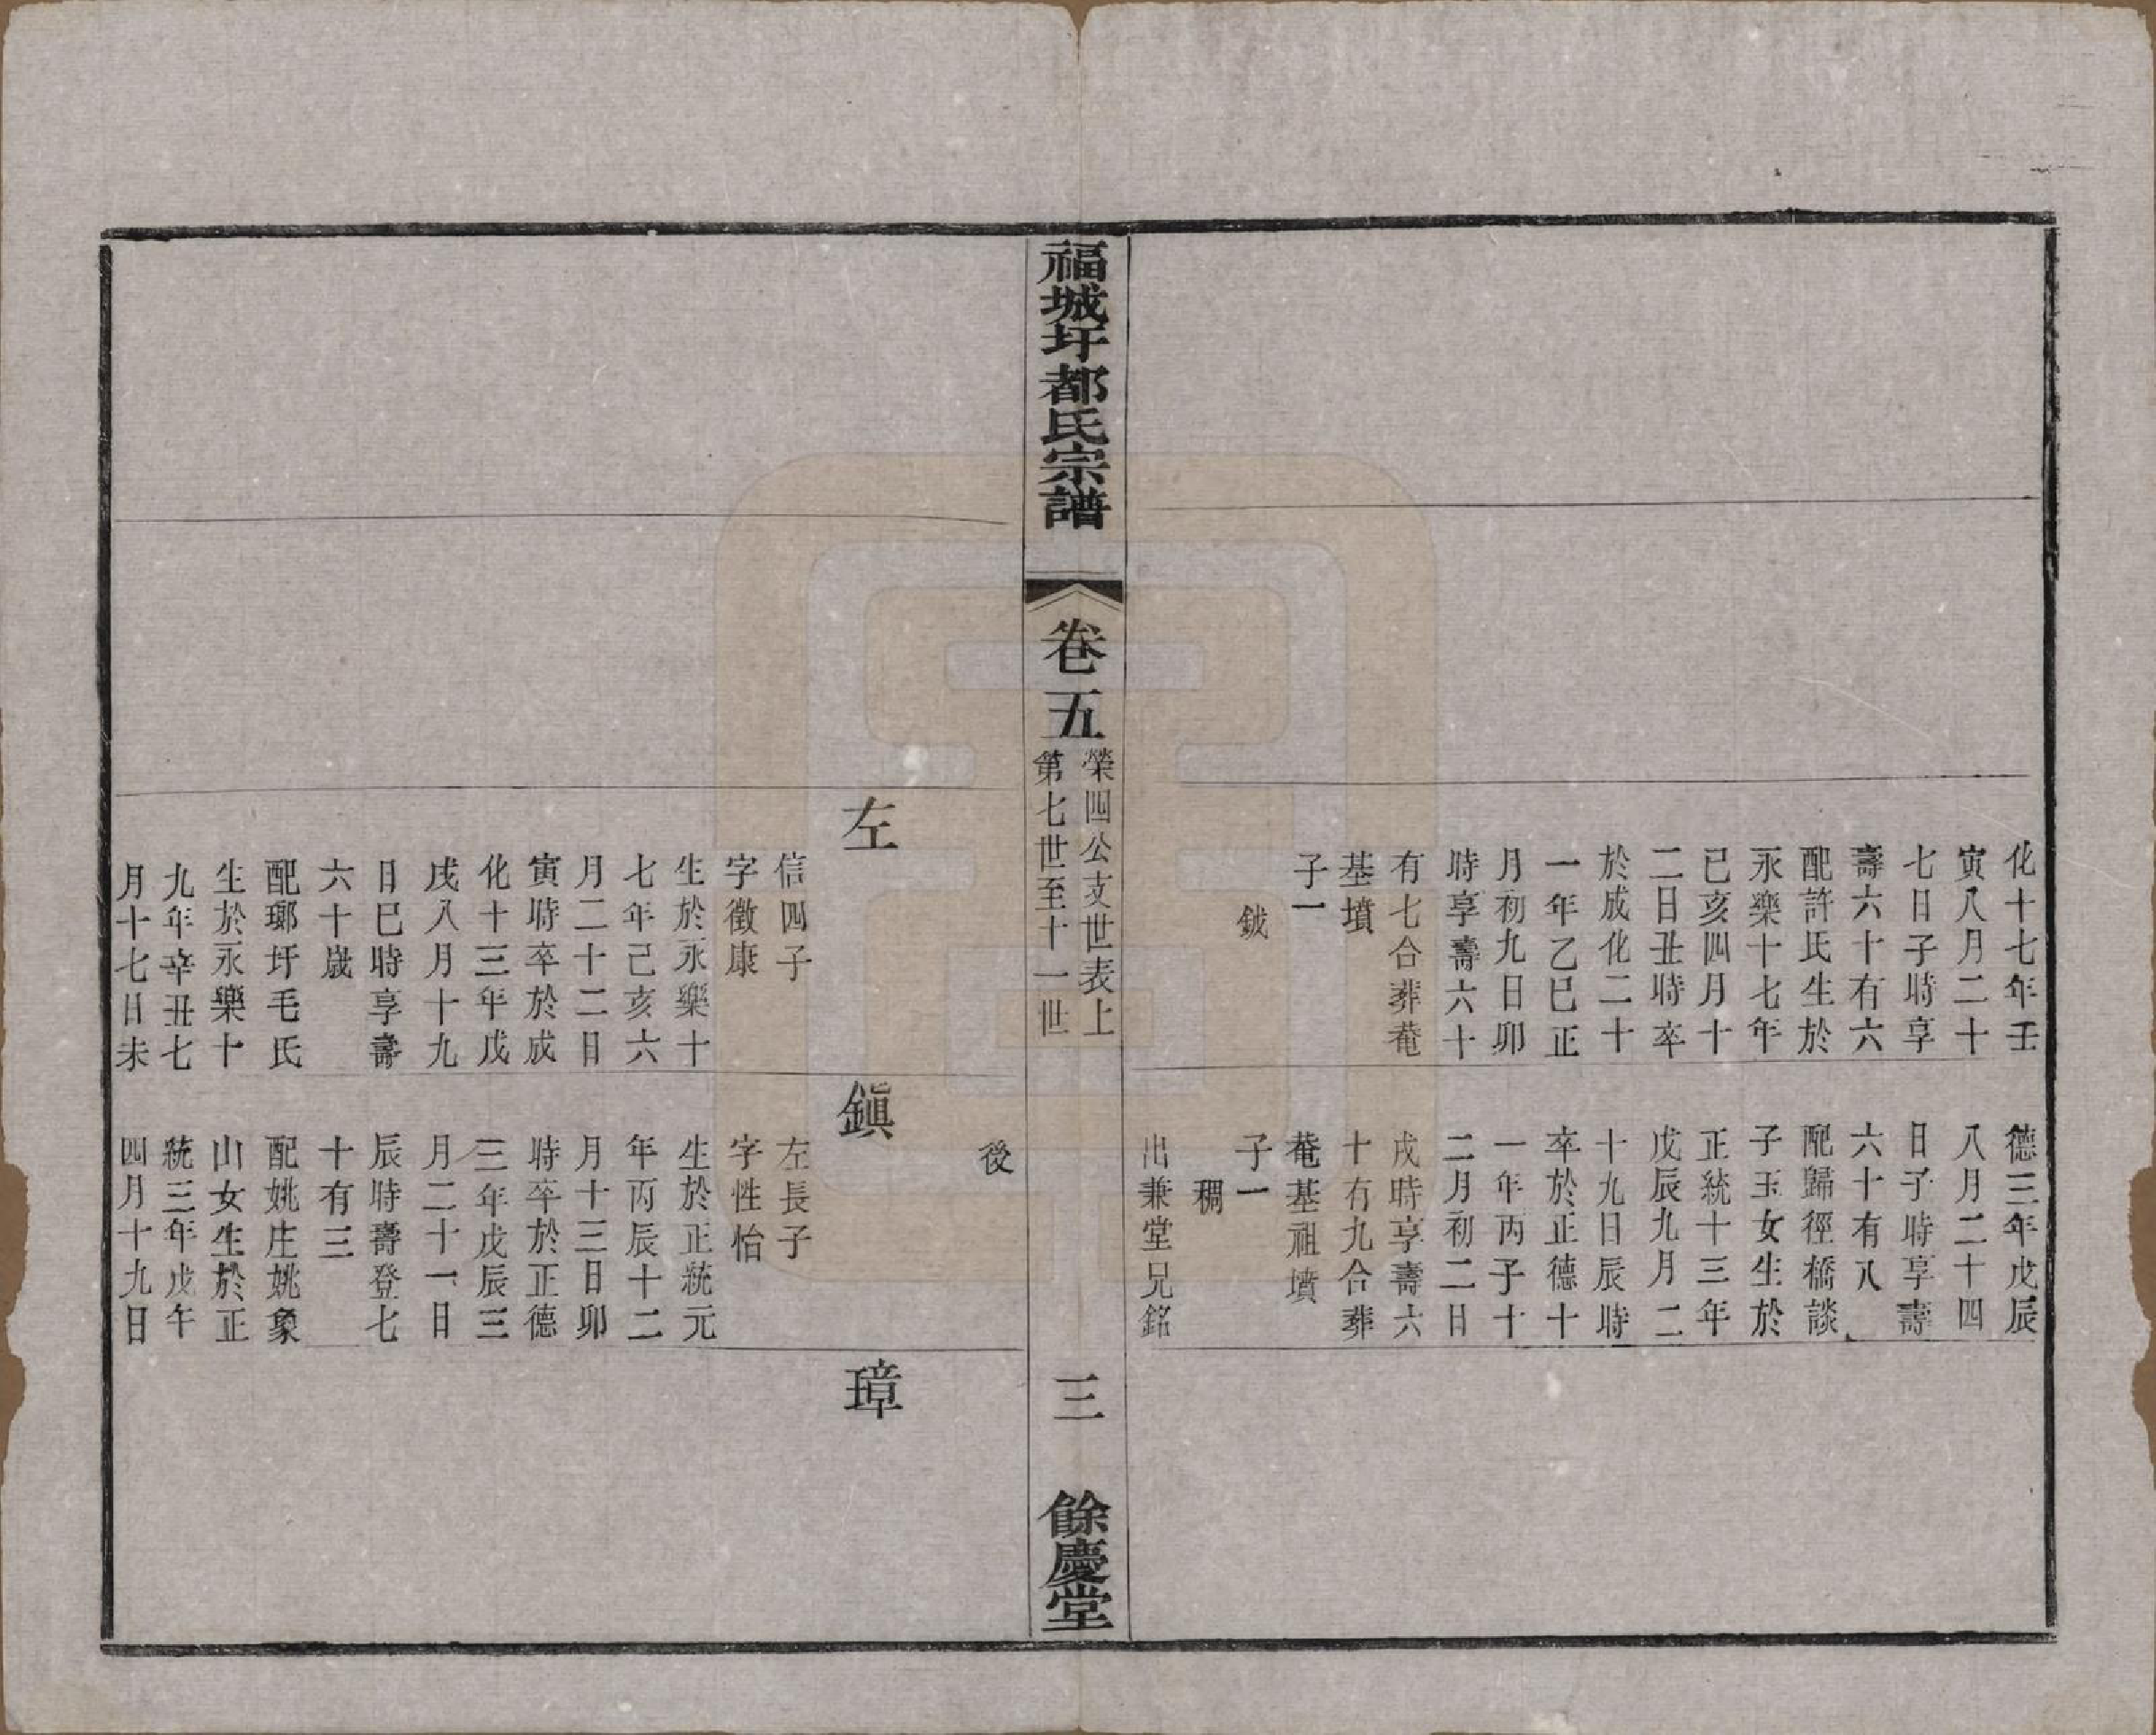 化十七年壬
寅八月二十
七日子時享
壽六十有六
配許氏生於
永樂十七年
已亥四月十
二日丑時卒
於成化二十
一年乙巳正
月初九日卯
時享壽六十
有七合葬菴
基墳
子一
鈸
德三年戊辰
八月二十四
日子時享壽
六十有八
配歸徑橋談
子玉女生於
正統十三年
戊辰九月二
十九日辰時
卒於正德十
一年丙子十
二月初二日
戌時享壽六
十有九合葬
菴基祖墳
子一
稠
出兼堂兄銘
福城圩都氏宗譜
卷五
榮四公支世表上
第七世至十一世
三
餘慶堂
後
左
信四子
字徵康
生於永樂十
七年己亥六
月二十二日
寅時卒於成
化十三年戊
戌八月十九
日巳時享壽
六十歲
配瑯圩毛氏
生於永樂十
九年辛丑七
月十七日未
鎭
左長子
字性怡
生於正統元
年丙辰十二
月十三日卯
時卒於正德
三年戊辰三
月二十一日
辰時壽登七
十有三
配姚庄姚象
山女生於正
統三年戊午
四月十九日
璋